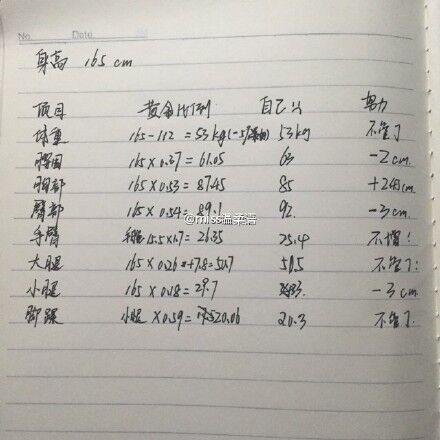 No. Date.
身高 165 cm
项目 黄金比例 自己 努力
体重 165-112 = 53kg 53kg 不管了
腰围 165×0.37=61.05 63 -2cm.
胸部 165×0.53=87.45 85 +2.45cm.
臀部 165×0.54=89.1 92. -3cm
@miss温柔酒
手臂 15.5×1.7=26.35 25.4 不增!
大腿 165×0.26 +7.8=50.7 50.5 不管了!
小腿 165×0.18=29.7 33. -3cm
脚踝 小腿×0.59= 20.06 20.3 不管了.